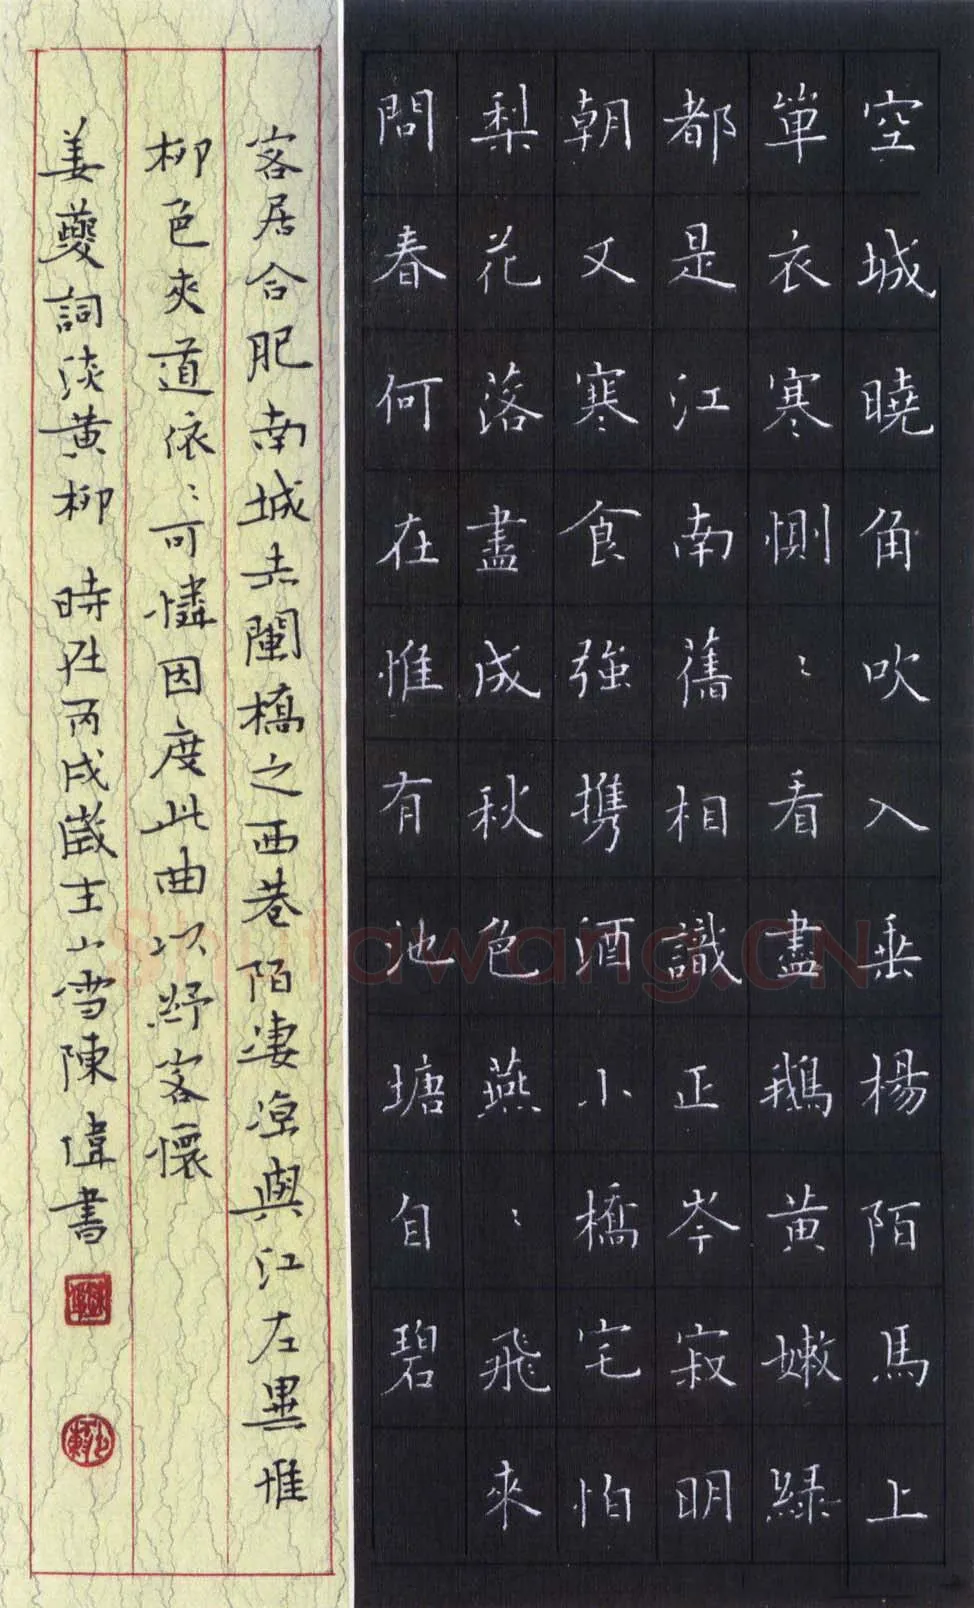 空城曉角吹入垂楊陌馬上
單衣寒惻〻看盡鵝黃嫩綠
都是江南舊相識正岑寂明
朝又寒食強携酒小橋宅怕
梨花落盡成秋色燕〻飛來
問春何在惟有池塘自碧
客居合肥南城赤闌橋之西巷陌凄涼與江左異惟
柳色夾道依〻可憐因度此曲以紓客懷
姜夔詞淡黃柳 時在丙戌歲主山雪陳偉書
Shufawang.CN